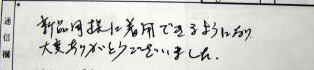 通信欄
新品同様に着用できるようになり
大変ありがとうございました。